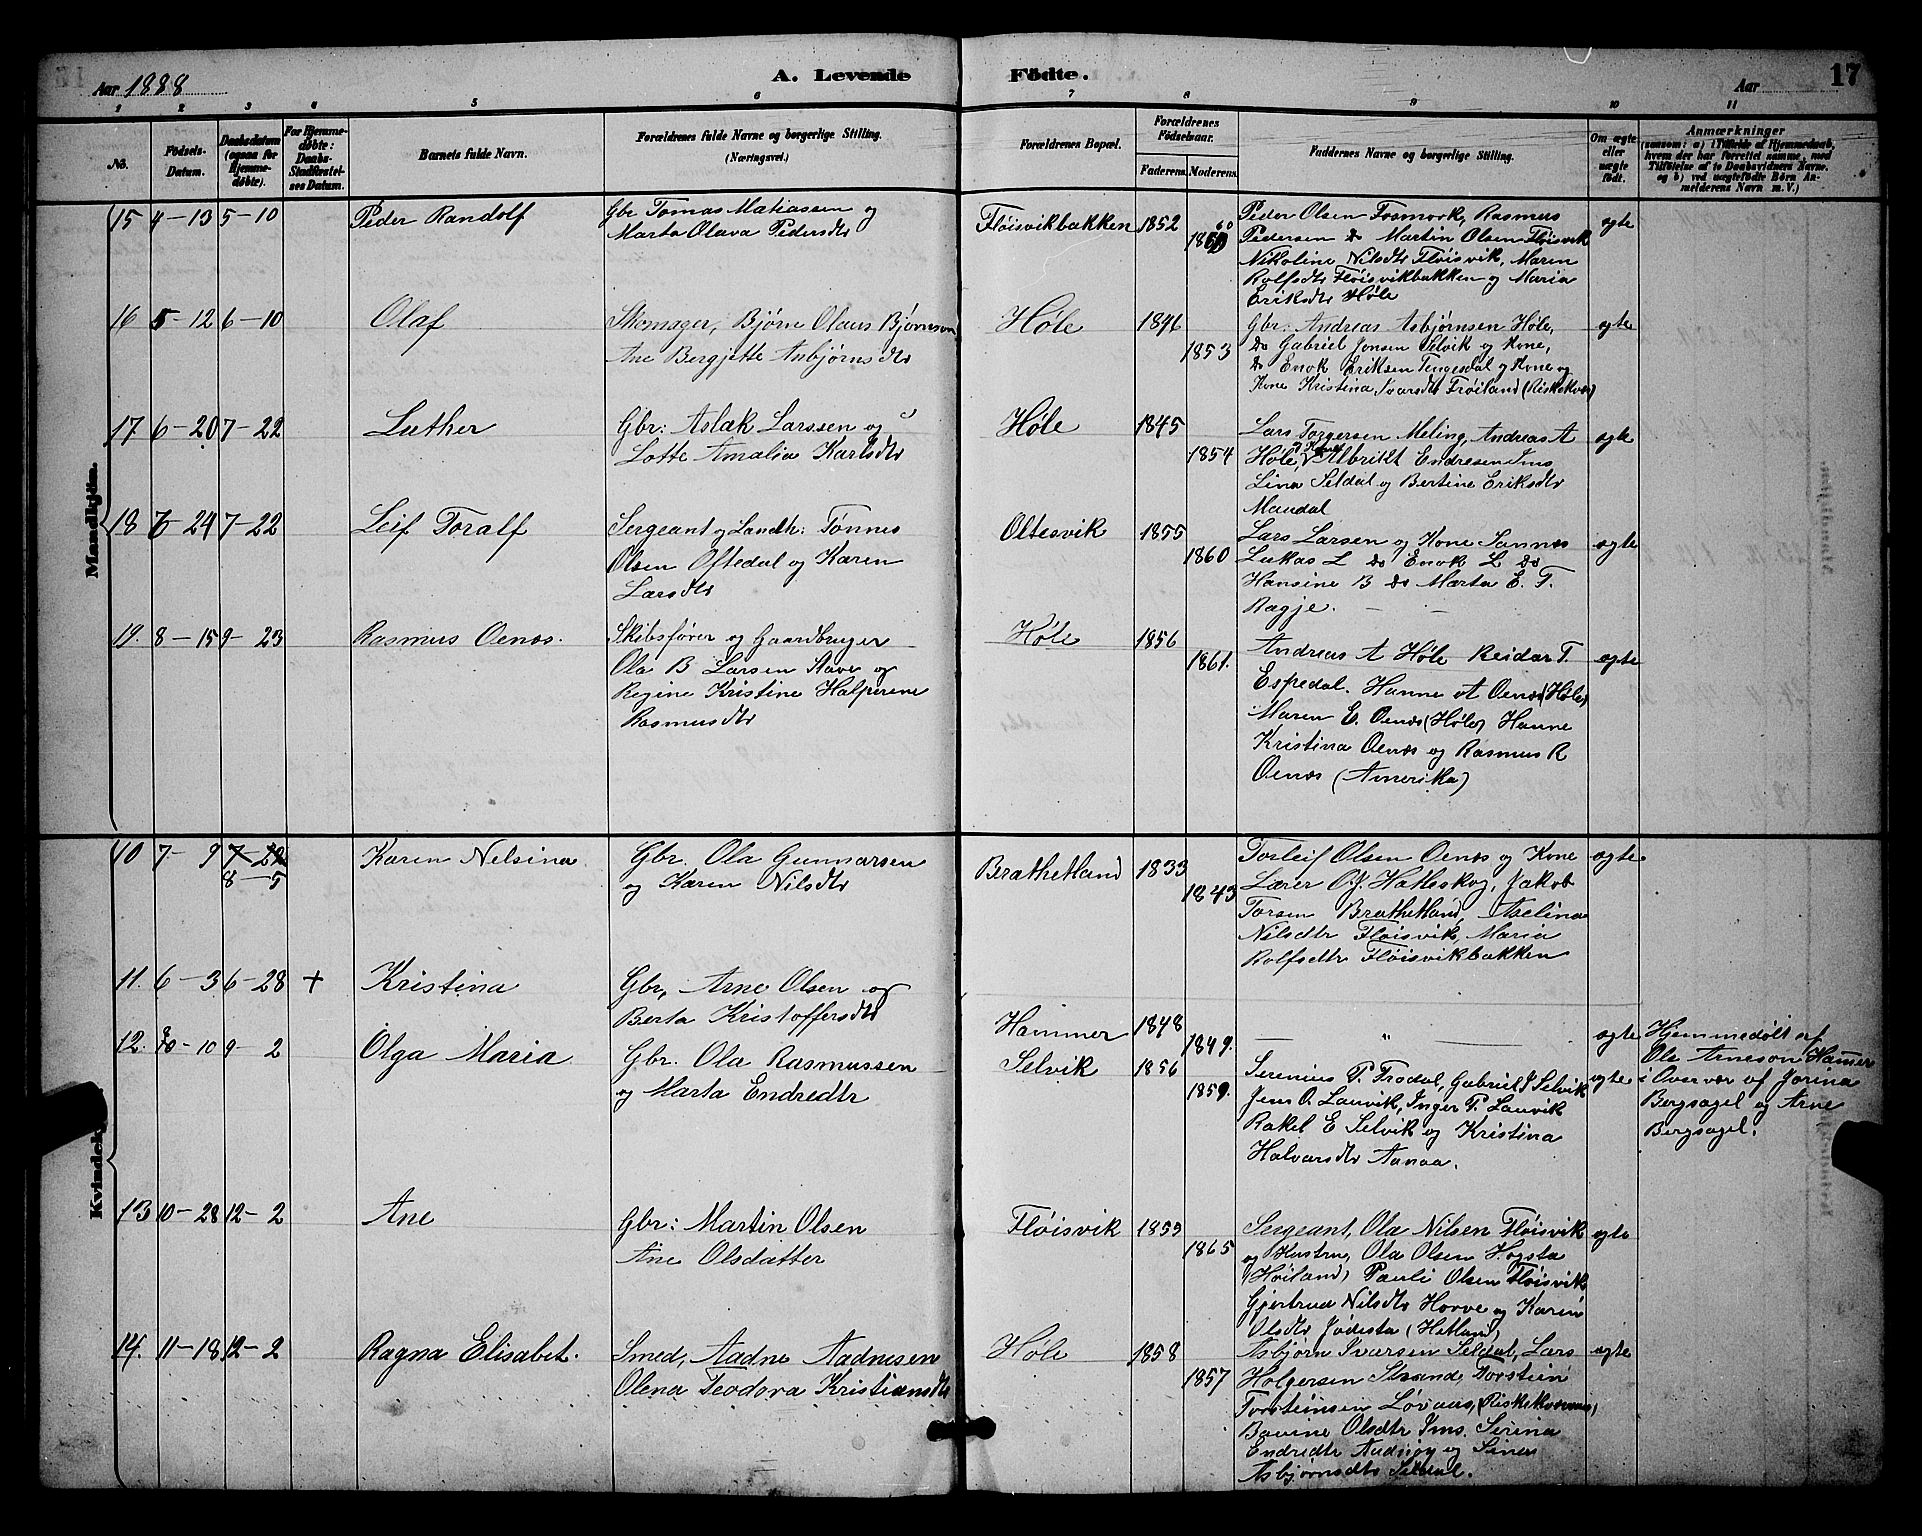 Aar 1888
A. Levende
Födte.
Aar
17
1 2 3 4 5 6 7 8 9 10 11
No.
Födsels-
Datum.
Daabsdatum
(ogsaa for
Hjemme-
döbte).
For Hjemme-
döbte:
Daabs-
Stadfæstel-
ses Datum.
Barnets fulde Navn.
Forældrenes fulde Navne og borgerlige Stilling.
(Næringsvei.)
Forældrenes Bopæl.
Forældrenes
Födselsaar.
Faderens. Moderens.
Faddernes Navne og borgerlige Stilling.
Om ægte
eller
uægte
födt.
Anmærkninger
(saasom: a) i Tilfælde af Hjemmedaab,
hvem der har forrettet samme, med
Tilföielse af to Daabsvidners Navne.
og b) ved uægtefödte Börn An-
melderens Navn m. V.)
Mandkjön.
15 4-13 5-10 Peder Randolf
Gbr Tomas Matiassen og
Marta Olava Pedersdtr
Fløisvikbakken 1852
1860
Peder Olsen Fosmork, Rasmus
Pedersen do Martin Olsen Fløisvik
Nikoline Nilsdtr Fløisvik, Maren
Rolfsdtr Fløisvikbakken og Maria
Eriksdtr Høle
ægte
16 5-12 6-10 Olaf
Skomager, Bjørn Olaus Bjørnsen
Ane Bergjette Asbjørnsdtr
Høle 1846
1853
Gbr: Andreas Asbjørnsen Høle,
do Gabriel Jonsen Selvik og Kone,
do Enok Eriksen Tengesdal og Kone og
Kone Kristina Ivarsdtr Frøiland (Riskekvær)
ægte
17 6-20 7-22 Luther
Gbr: Aslak Larssen og
Lotte Amalia Karlsdtr
Høle 1845
1854
Lars Torgersen Meling, Andreas A
Høle, og Kone Albrikt Endresen Ims
Lina Seldal og Bertine Eriksdtr
Maudal
ægte
18 6-24 7-22 Leif Toralf
Sergeant og Landh: Tønnes
Olsen Oftedal og Karen
Larsdtr
Oltesvik 1855
1860
Lars Larsen og Kone Sannes
Lukas L do Enok L do
Hansine B do Marta E. T.
Ragje.
ægte
19. 8-15 9-23 Rasmus Oenæs.
Skibsfører og Gaardbruger
Ola B Larsen Stave og
Regine Kristine Halperene
Rasmusdtr
Høle 1856
1861.
Andreas A Høle Reidar T.
Espedal. Hanne A Oenæs (Høle)
Maren E. Oenæs (Høle) Hanne
Kristina Oenæs og Rasmus R
Oenæs (Amerika)
ægte
Kvindekjön.
10 7-9 7-22 8-5 Karen Nelsina
Gbr. Ola Gunnarsen
og Karen Nilsdtr
Brathetland 1833
1843
Torleif Olsen Oenæs og Kone
Lærer O.J. Hatleskog, Jakob
Torsen Brathetland, Aselina
Nilsdtr Fløisvik, Maria
Rolfsdtr Fløisvikbakken
ægte
11. 6-3 6-28 + Kristina
Gbr, Arne Olsen og
Berta Kristoffersdtr
Hammer 1848
1849.
— „ —
ægte
Hjemmedøbt af
Ole Arneson Hammer
i Overvær af Jorina
Bergsagel og Arne
Bergsagel.
12. 8-10 9-2 Olga Maria
Gbr. Ola Rasmussen
og Marta Endredtr
Selvik 1856
1859.
Serenius P. Frodal, Gabriel J Selvik
Jens O. Lauvik, Inger P. Lauvik
Rakel E Selvik og Kristina
Halvarsdtr Aanaa.
ægte
13 10-28 12-2 Ane
Gbr: Martin Olsen
Ane Olsdatter
Fløisvik 1859
1865
Sergeant, Ola Nilsen Fløisvik
og Hustru, Ola Olsen Hogsta
(Høiland) Pauli Olsen Fløisvik
Gjertrud Nilsdtr Horve og Karen
Olsdtr Jødesta (Hetland)
ægte
14. 11-18 12-2 Ragna Elisabet.
Smed, Aadne Aadnesen
Olena Teodora Kristiansdtr
Høle 1858
1857
Asbjørn Ivarsen Seldal, Lars
Holgersen Strande, Torstein
Torsteinsen Løvaas, (Riskekværnæs)
Bovine Olsdtr Ims. Serina
Endredtr Aadnøy og Sina
Asbjørnsdtr Seldal.
ægte